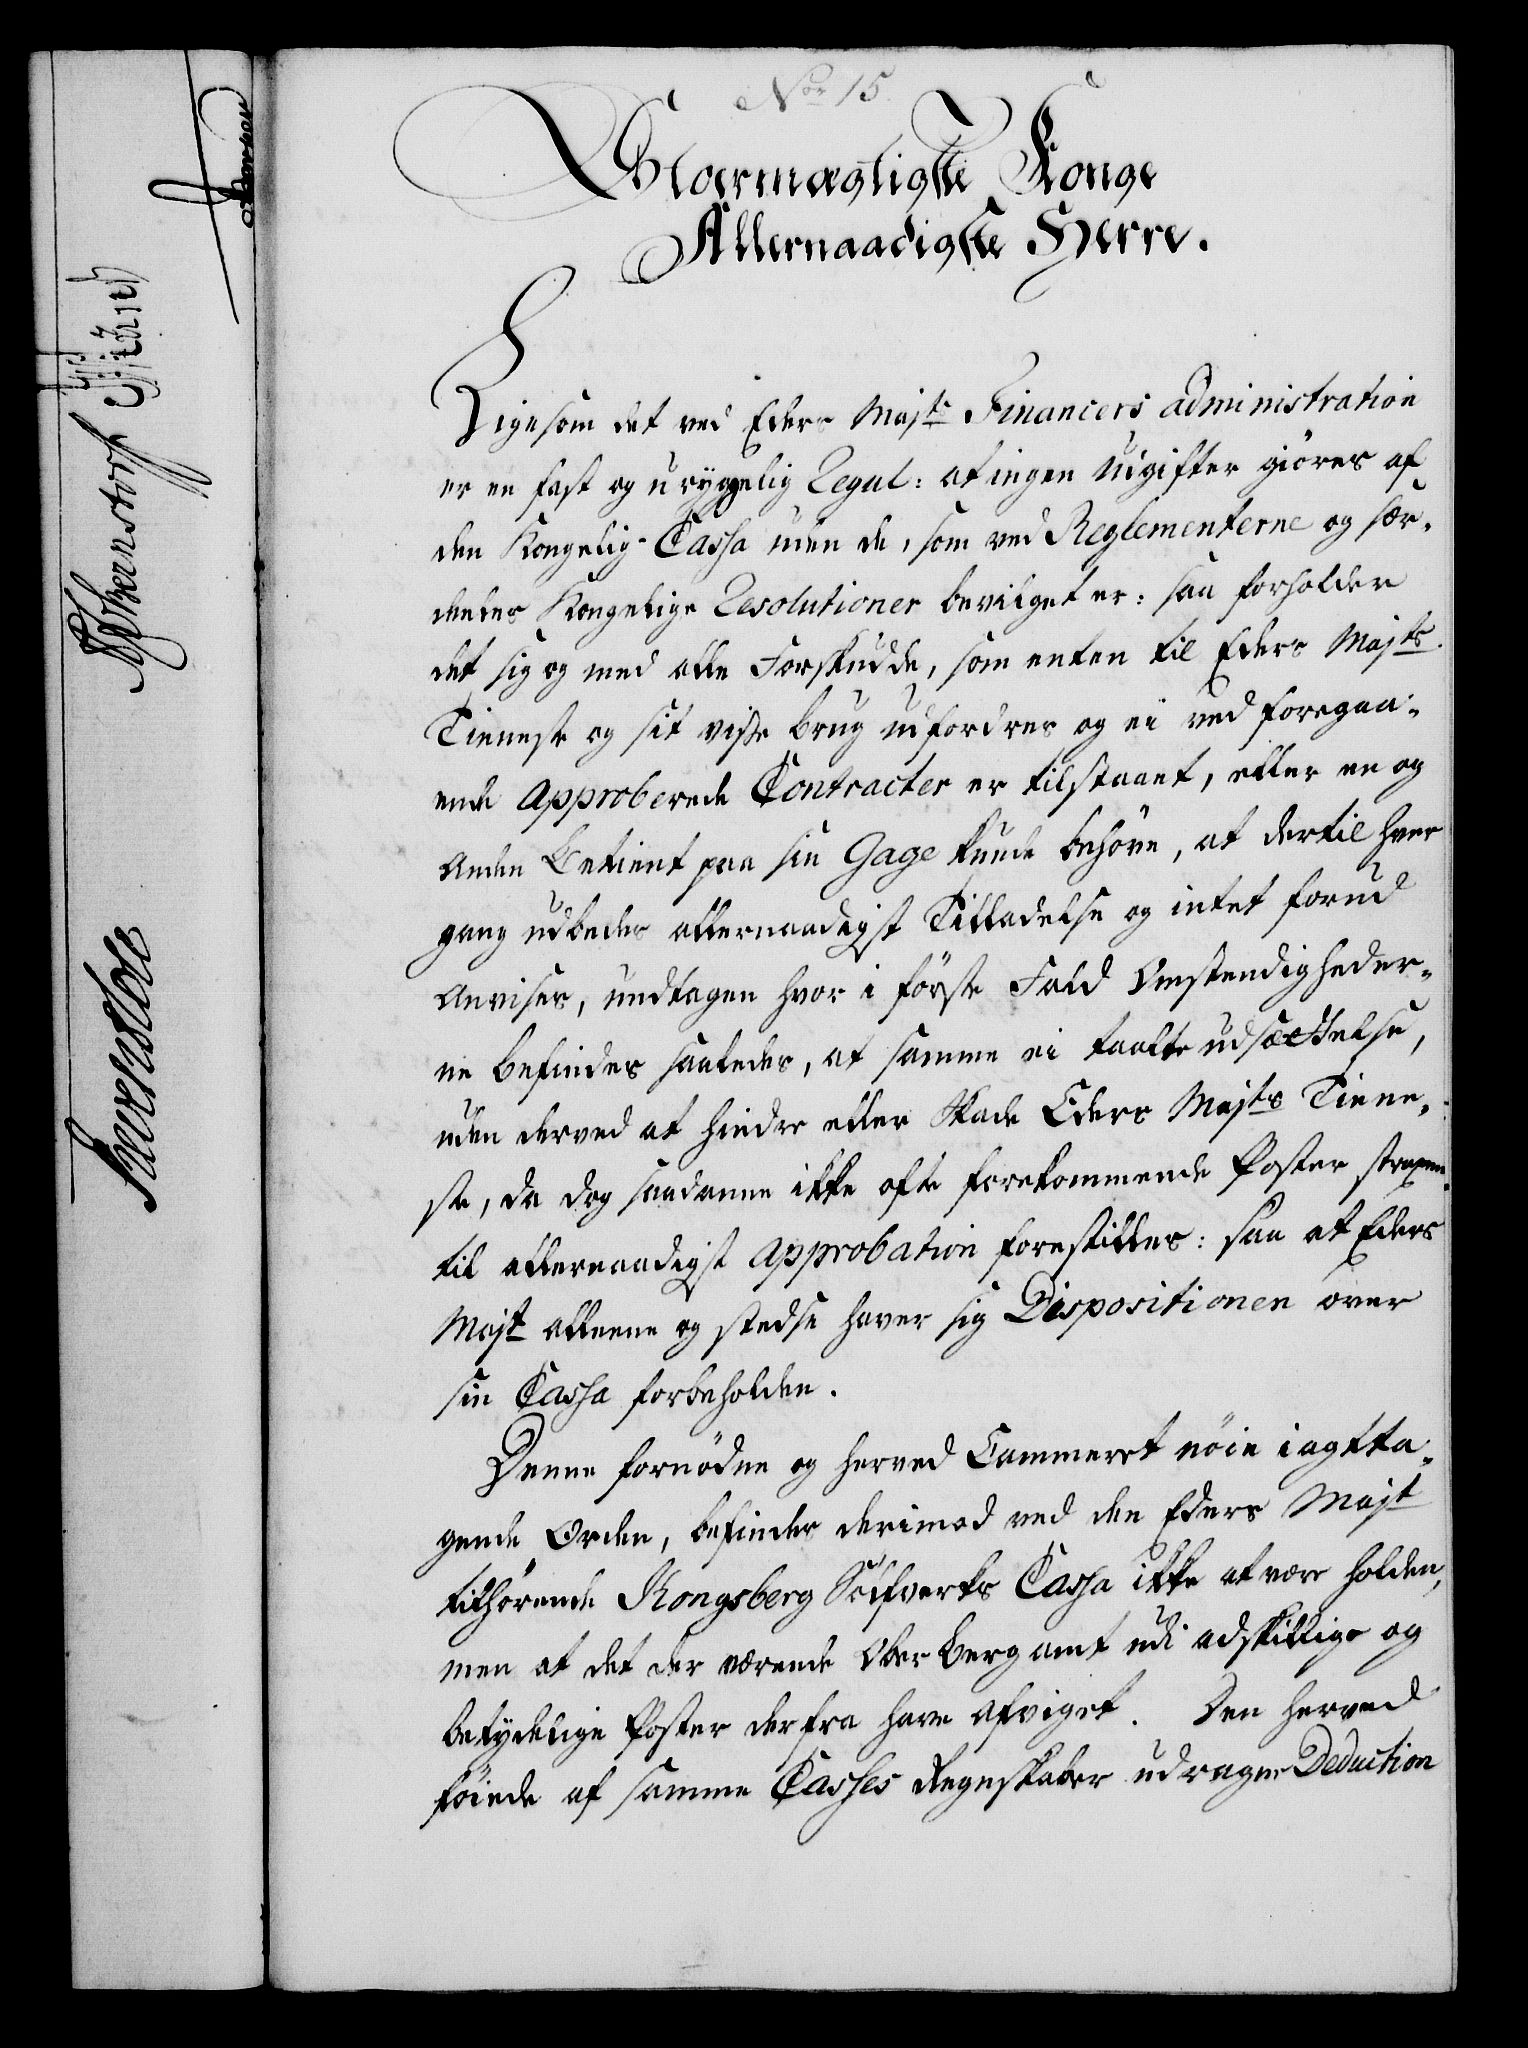 No 15
Stormægtigste Konge
Allernaadigste Herre.
Ligesom det ved Eders Majts Financers administration
er en fast og uryggelig Regul: at ingen Udgifter giöres af
den Kongelig Cassa uden de, som ved Reglementerne og sær-
deeles Kongelige Resolutioner bevilget er: saa forholder
det sig og med alle Forskudde, som enten til Eders Majts
Tieneste og sit visse brug udfordres og ei ved foregaa-
ende Approberede Contracter er tilstaaet, eller en og
Anden Betient paa sin Gage kunde behöve, at dertil hver
gang udbedes allernaadigst Tilladelse og intet forud
Anvises, undtagen hvor i förste Fald Omstendigheder-
ne befindes saaledes, at samme ei taalte udsættelse,
uden derved at hindre eller Skade Eders Majts Tiene-
ste, da dog saadanne ikke ofte forekommende Poster straxen
til allernaadigst Approbation forestilles: saa at Eders
Majt alleene og stedse haver sig Dispositionen over
sin Cassa forbeholden.
Denne fornödne og herved Cammeret nöie iagtta-
gende Orden, befindes derimod ved den Eders Majt
tilhörende Kongsberg Sölfverks Cassa ikke at være holden,
men at det der værende Ober Berg amt udi adskillige og
betydelige Poster derfra have afviget. Den herved
föiede af samme Casses Regnskaber udragne Deduction